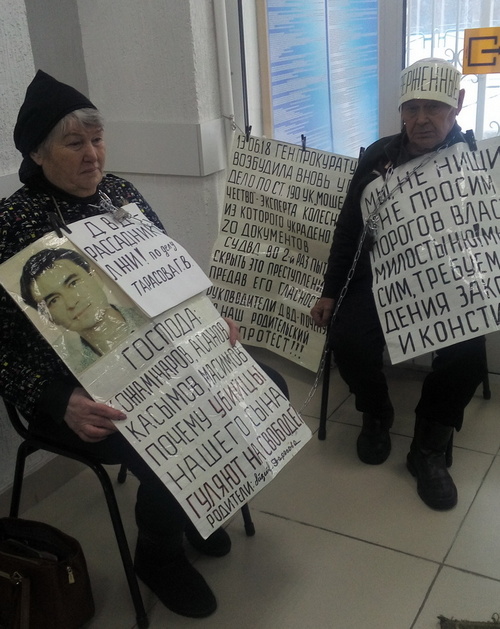 ДВА
РАССАДНИК
ЛЖИ! по делу
ТАРАСОВА Г.В
ГОСПОДА:
КАСЫМОВ МАСИМОВ
ПОЧЕМУ УБИЙЦЫ
НАШЕГО СЫНА
ГУЛЯЮТ НА СВОБОДЕ!
РОДИТЕЛИ:
13.0618 ГЕНПРОКУРАТУ
ВОЗБУДИЛА ВНОВЬ У
ДЕЛО ПО СТ 190 УК, МОШЕ
ЧЕСТВО-ЭКСПЕРТА КОЛЕСН
ИЗ КОТОРОГО УКРАДЕНО
20 ДОКУМЕНТОВ
СКРЫТЬ ЭТО ПРЕСТУПЛЕН
ПРЕДАВ ЕГО ГЛАСНОС
РУКОВОДИТЕЛИ ДВД-ПОЧЕ
НАШ РОДИТЕЛЬСКИЙ
ПРОТЕСТ!!!
ЕРЖЕННОЕ
МЫ НЕ НИЩИ
НЕ ПРОСИМ
ПОРОГОВ ВЛАС
МИЛОСТЫНЮ! МЫ
СИМ, ТРЕБУЕМ
ДЕНИЯ ЗАКО
И КОНСТИ